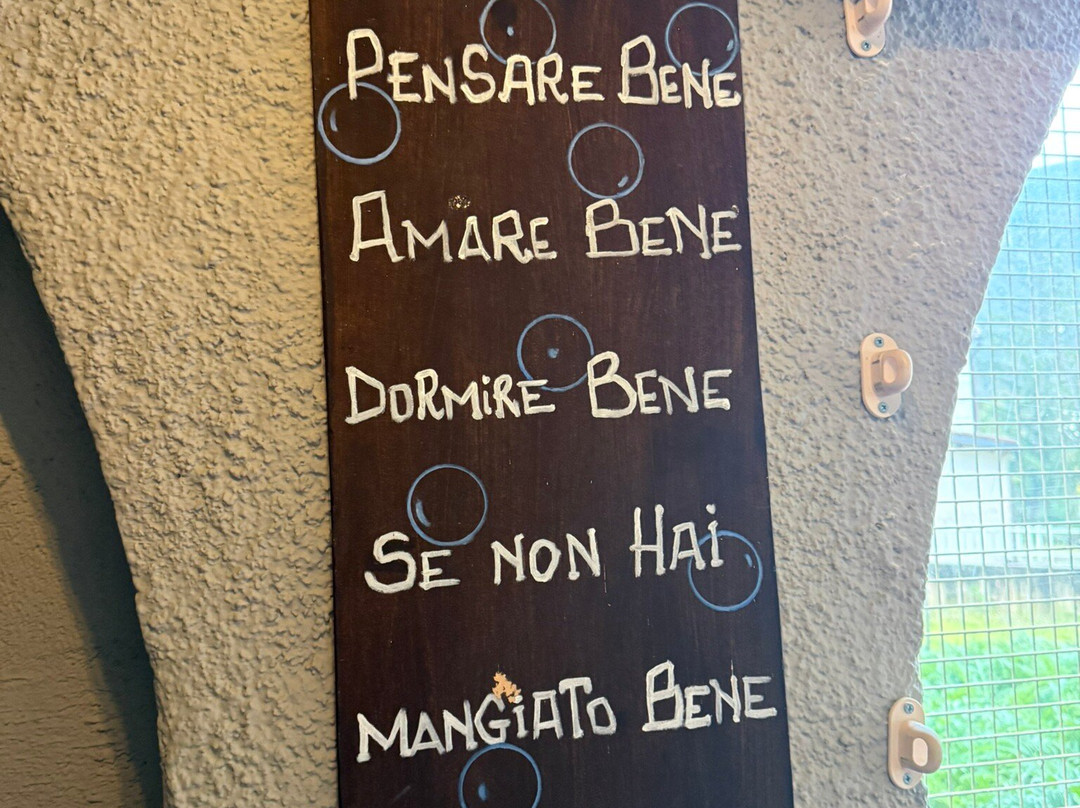 PENSARE BENE
AMARE BENE
DORMiRE BENE
SE NON HAi
MANGiATO BENE